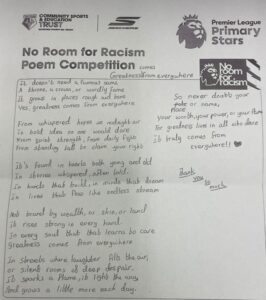 COMMUNITY SPORTS
& EDUCATION
TRUST
Premier League
Primary
Stars
No Room for Racism
Poem Competition
Greatness comes from everywhere
No
Room
for
Racism
It doesn't need a famous name
A throne, a crown, or worldly fame
It grows in places rough and bare
Yes, greatness comes from everywhere
From whispered hopes in midnight air
To bold idea no one would dare
From quiet strength, from daily fight
From standing tall to claim your right
It's found in hearts both young and old
In stories whispered, often told
In hands that build, in minds that dream
In lives that flow like endless stream
Not bound by wealth, or skin, or land
It rises strong in every hand
In every soul that learns to care
Greatness comes from everywhere
In streets where laughter fills the air,
or silent rooms of deep despair.
It sparks a flame, it lights the way,
And grows a little more each day.
So never doubt your
place or name,
your worth, your power, or your flame
For greatness lives in all who dare
It truly comes from
everywhere!!
Thank
you
so
much